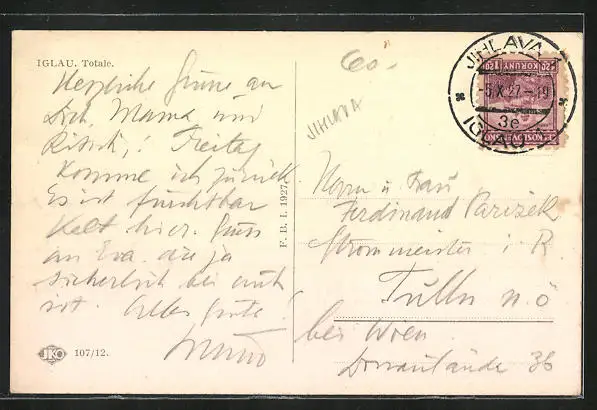 IGLAU. Totale.
Herzliche Grüsse an
Dich, Mama und
Freitag
komme ich zurück.
Es ist furchtbar
kalt hier. Gruss
an Eva. die ja
sicherlich bei euch
ist. Alles gute!
JKO 107/12.
F. B. I. 1927.
60.-
JIHLAVA
JIHLAVA
-5.X.27.-19
3e
IGLAU
Herrn u. Frau
Ferdinand Parizek
Strommeister i. R.
Tulln n. ö
bei Wien
Donaulände 36